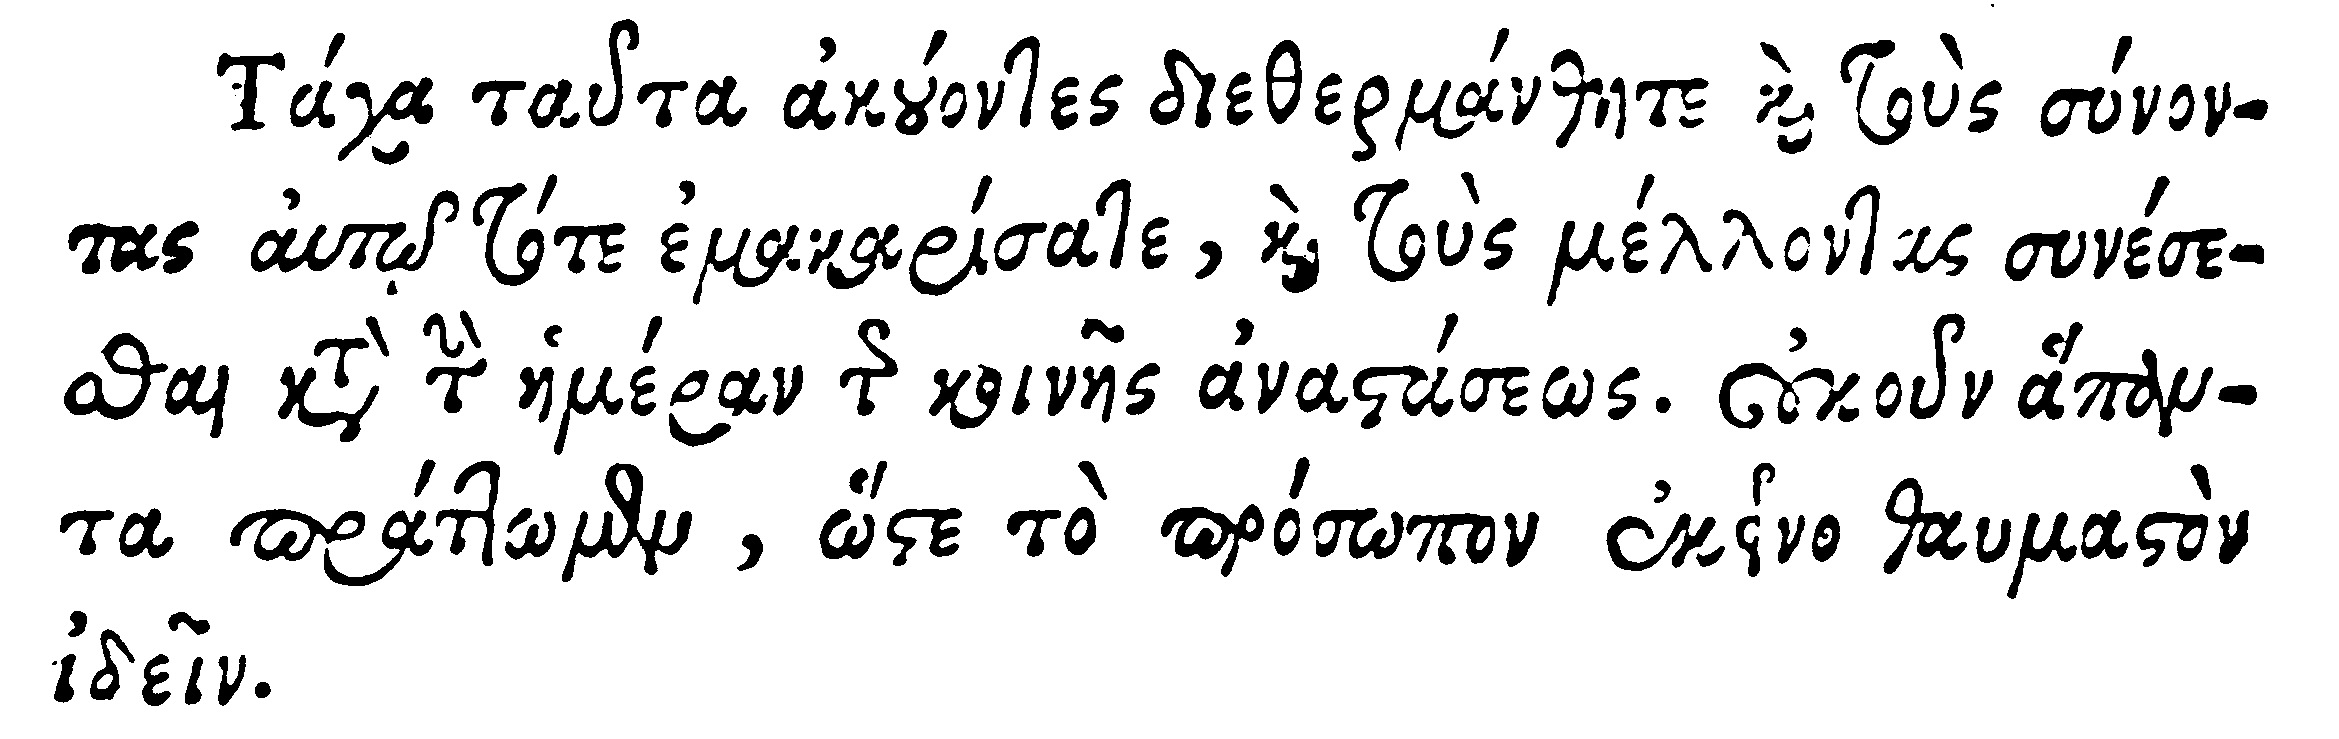 Τάχα ταῦτα ἀκούοντες διεθερμάνθητε καὶ τοὺς συνόν-
τας αὐτῷ τότε ἐμακαρίσατε, καὶ τοὺς μέλλοντας συνέσε-
σθαι κατὰ τὴν ἡμέραν τῆς κοινῆς ἀναστάσεως. οὐκοῦν ἅπαν-
τα πράττωμεν, ὥστε τὸ πρόσωπον ἐκεῖνο θαυμαστὸν
ἰδεῖν.